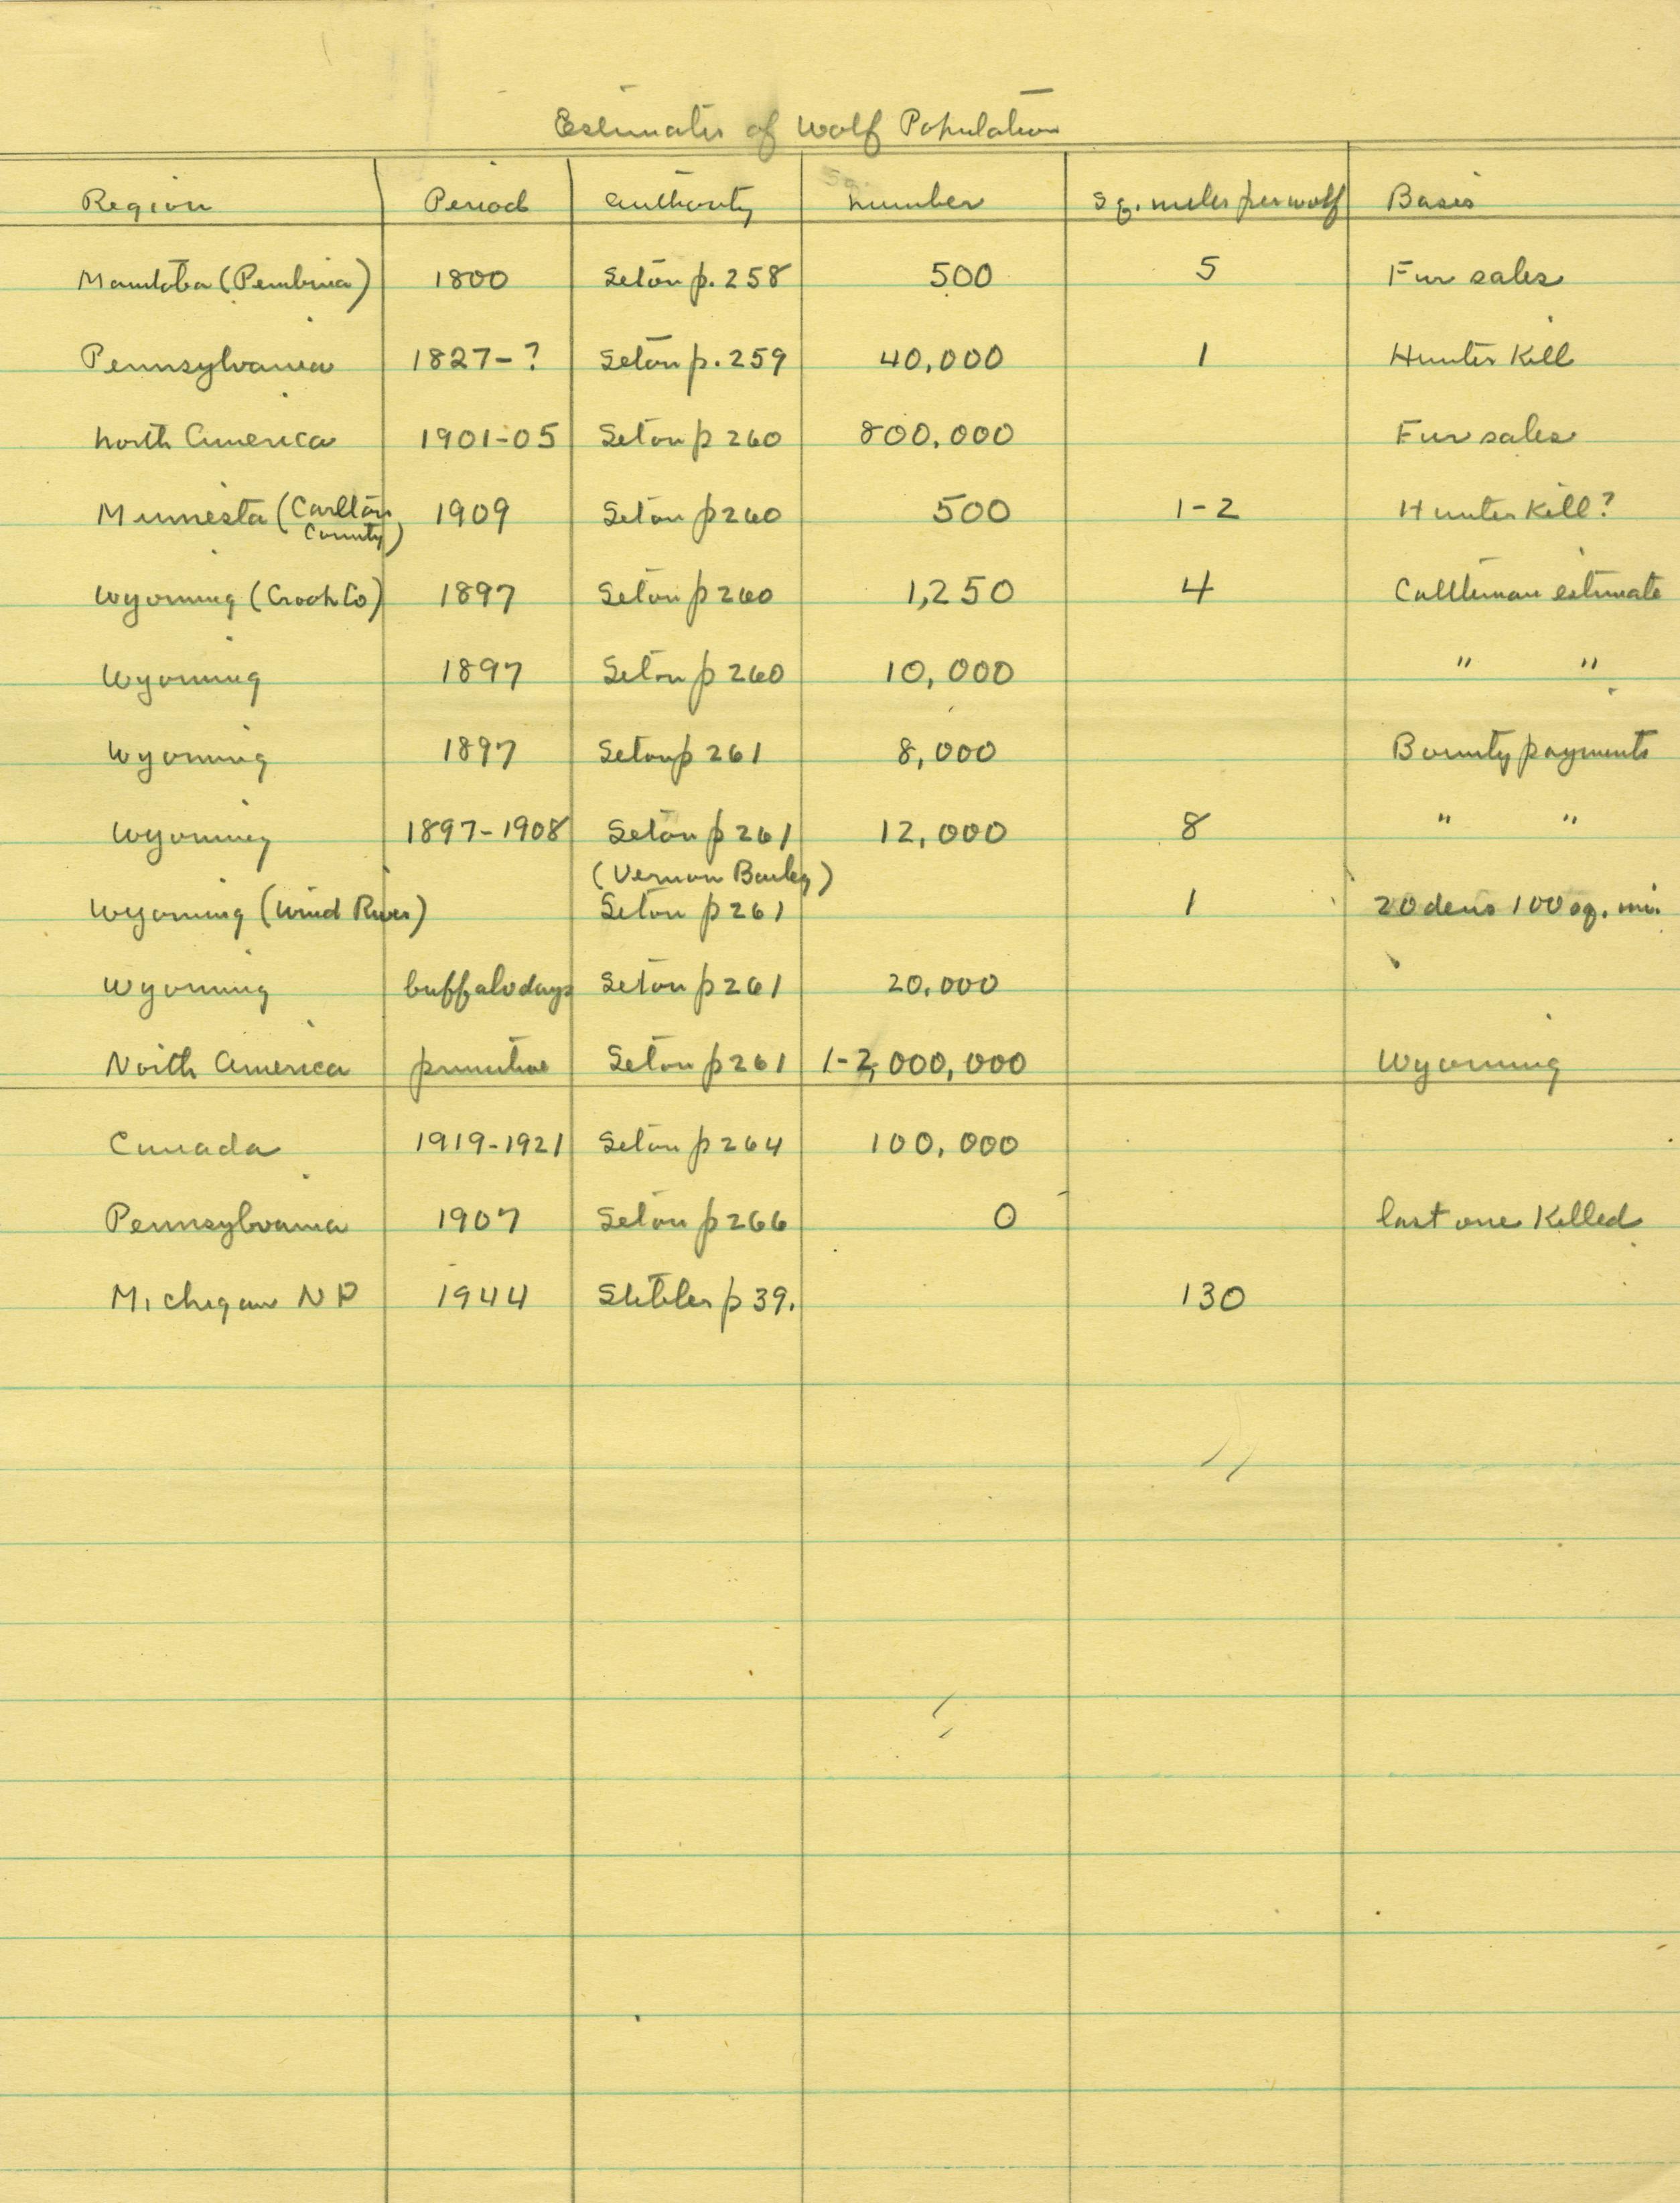 Estimates of Wolf Population
Region Period Authority Number Sq. miles per wolf Basis
Manitoba (Pembina) 1800 Seton p. 258 500 5 Fur sales
Pennsylvania 1827-? Seton p. 259 40,000 1 Hunter Kill
North America 1901-05 Seton p 260 800,000 Fur sales
Minnesta (Carlton County) 1909 Seton p 260 500 1-2 Hunter Kill?
Wyoming (Crook Co) 1897 Seton p 260 1,250 4 Cattleman estimate
Wyoming 1897 Seton p 260 10,000 " "
Wyoming 1897 Seton p 261 8,000 Bounty payments
Wyoming 1897-1908 Seton p 261 12,000 8 " "
(Vernon Bailey)
Wyoming (Wind River) Seton p 261 1 20 dens 100 sq. mi.
Wyoming buffalo days Seton p 261 20,000
North America primitive Seton p 261 1-2,000,000 Wyoming
Canada 1919-1921 Seton p 264 100,000
Pennsylvania 1907 Seton p 266 0 last one Killed
Michigan N P 1944 p 39. 130